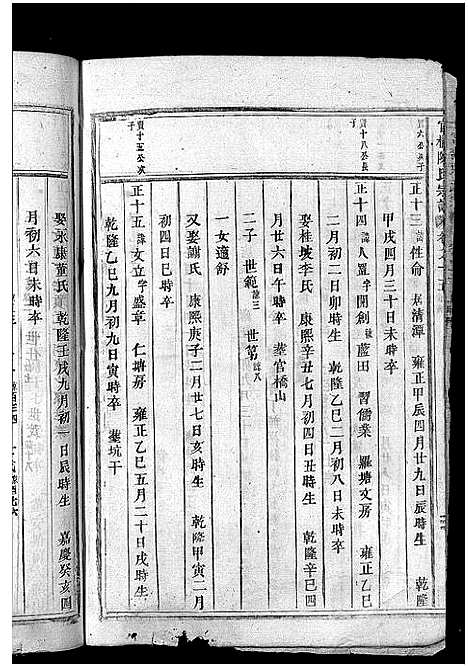 官橋陳氏宗譜 卷之十五
賢六公長子
正十三 諱性俞 居清潭 雍正甲辰四月廿九日辰時生 乾隆
甲戌四月三十日未時卒
賢十八公長子
正十四 諱人置 字開創 號藍田 習儒業 羅塘文房 雍正乙巳
二月初二日卯時生 乾隆乙巳二月初八日未時卒
娶桂坡李氏 康熙辛丑七月初四日丑時生 乾隆辛巳四
月廿六日午時卒 塟官橋山
二子 世範 諱三 世第 諱八
一女適舒
又娶謝氏 康熙庚子二月廿七日亥時生 乾隆甲寅二月
初四日巳時卒
賢十五公次子
正十五 諱文立 字盛章 仁塘房 雍正乙巳五月二十日戌時生
乾隆乙巳九月初九日寅時卒 塟坑干
娶永康董氏 乾隆壬戌九月初一日辰時生 嘉慶癸亥四
月初六日未時卒